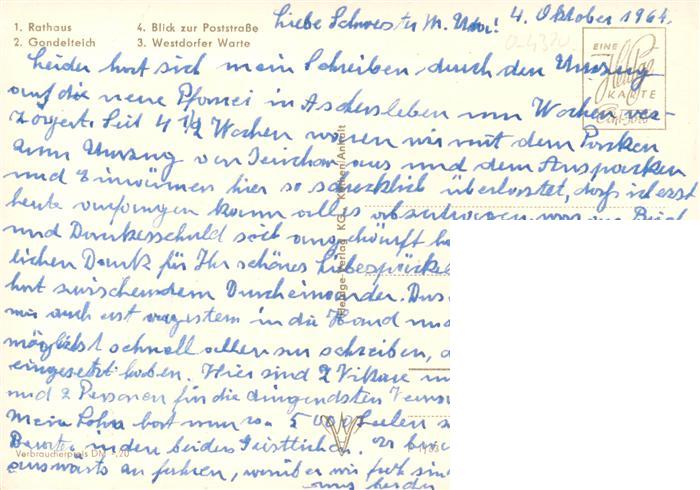 1. Rathaus 4. Blick zur Poststraße
2. Gondelteich 3. Westdorfer Warte
4. Oktober 1964.
Liebe Schwester M.
EINE
Heldge
KARTE
Leider hat sich mein Schreiben durch den Umzug
auf die neue Pfarrei in Aschersleben um Wochen ver-
zögert. Seit 4 1/2 Wochen waren wir mit dem Packen
zum Umzug von aus und dem Auspacken
und Einräumen hier so schrecklich überlastet, daß ich erst
heute anfangen kann alles abzutragen was an
und Dankesschuld sich angehäuft
lichen Dank für Ihr schönes
hat zwischen dem Durcheinander.
mir auch erst in die Hand
möglichst schnell allen zu schreiben,
eingesetzt haben. Hier sind 2 Vikare
und 2 Personen für die dringendsten
Mein Sohn hat nun ca. 5 000 Seelen
in den beiden Geistlichen.
auswärts zu fahren, worüber wir froh sind
uns beider
Heldge-Verlag KG., Köthen/Anhalt
Verbraucherpreis DM -,20